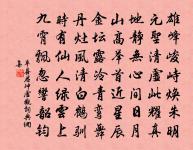 雄峰峻峙煥朱明
元聖清
地靜無心間日月
山高舉首近星辰
金壇露冷青
丹灶風清白鶴馴
時有仙人綠雲上
九霄飄忽響韶鈞